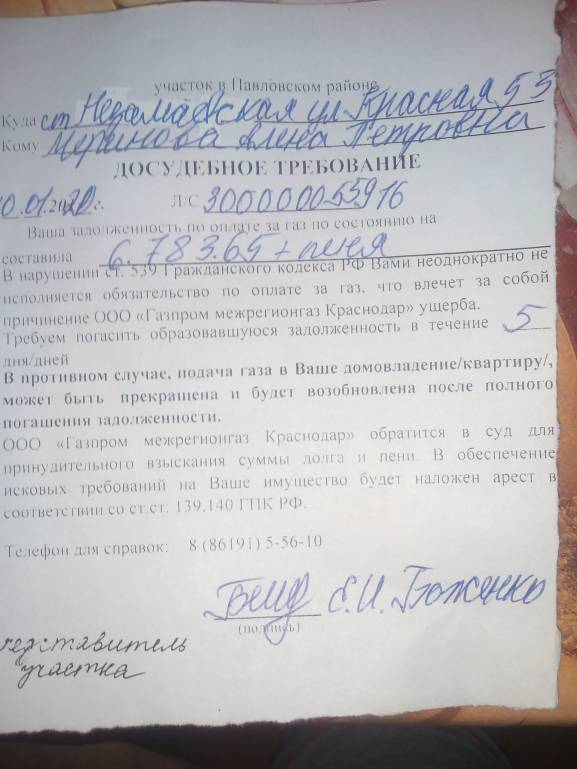 участок в Павловском районе
Куда ст Незамаевская ул Красная 53
Кому Меринова Алена Петровна
ДОСУДЕБНОЕ ТРЕБОВАНИЕ
10.01.2020г. Л/С 300000055916
Ваша задолженность по оплате за газ по состоянию на
составила 6.783.65 + пеня
В нарушении ст. 539 Гражданского кодекса РФ Вами неоднократно не
исполняется обязательство по оплате за газ, что влечет за собой
причинение ООО «Газпром межрегионгаз Краснодар» ущерба.
Требуем погасить образовавшуюся задолженность в течение 5
дня/дней
В противном случае, подача газа в Ваше домовладение/квартиру/,
может быть прекращена и будет возобновлена после полного
погашения задолженности.
ООО «Газпром межрегионгаз Краснодар» обратится в суд для
принудительного взыскания суммы долга и пени. В обеспечение
исковых требований на Ваше имущество будет наложен арест в
соответствии со ст.ст. 139,140 ГПК РФ.
Телефон для справок: 8 (86191) 5-56-10
Е.И. Боженко
(подпись)
редставитель
участка